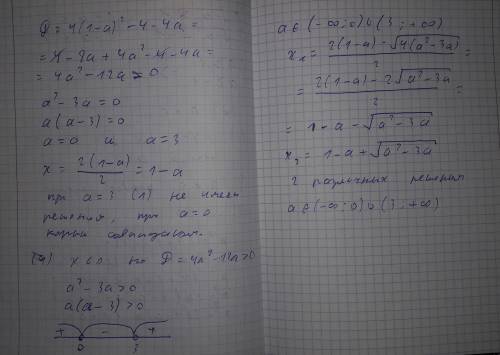 D = 4(1-a)² - 4 - 4a =
= 4 - 8a + 4a² - 4 - 4a =
= 4a² - 12a = 0
a² - 3a = 0
a(a-3) = 0
a = 0 и a = 3
x = 2(1-a)/2 = 1-a
при a = 3 (1) не имеет
решения, при a = 0
корни совпадают.
x < 0 но D = 4a² - 12a > 0
a² - 3a > 0
a(a-3) > 0
+ - +
0 3
a ∈ (-∞; 0) ∪ (3; +∞)
x₁ = (2(1-a) - √4(a² - 3a))/2 =
= (2(1-a) - 2√a² - 3a)/2 =
= 1 - a - √a² - 3a
x₂ = 1 - a + √a² - 3a
2 различных решения
a ∈ (-∞; 0) ∪ (3; +∞)